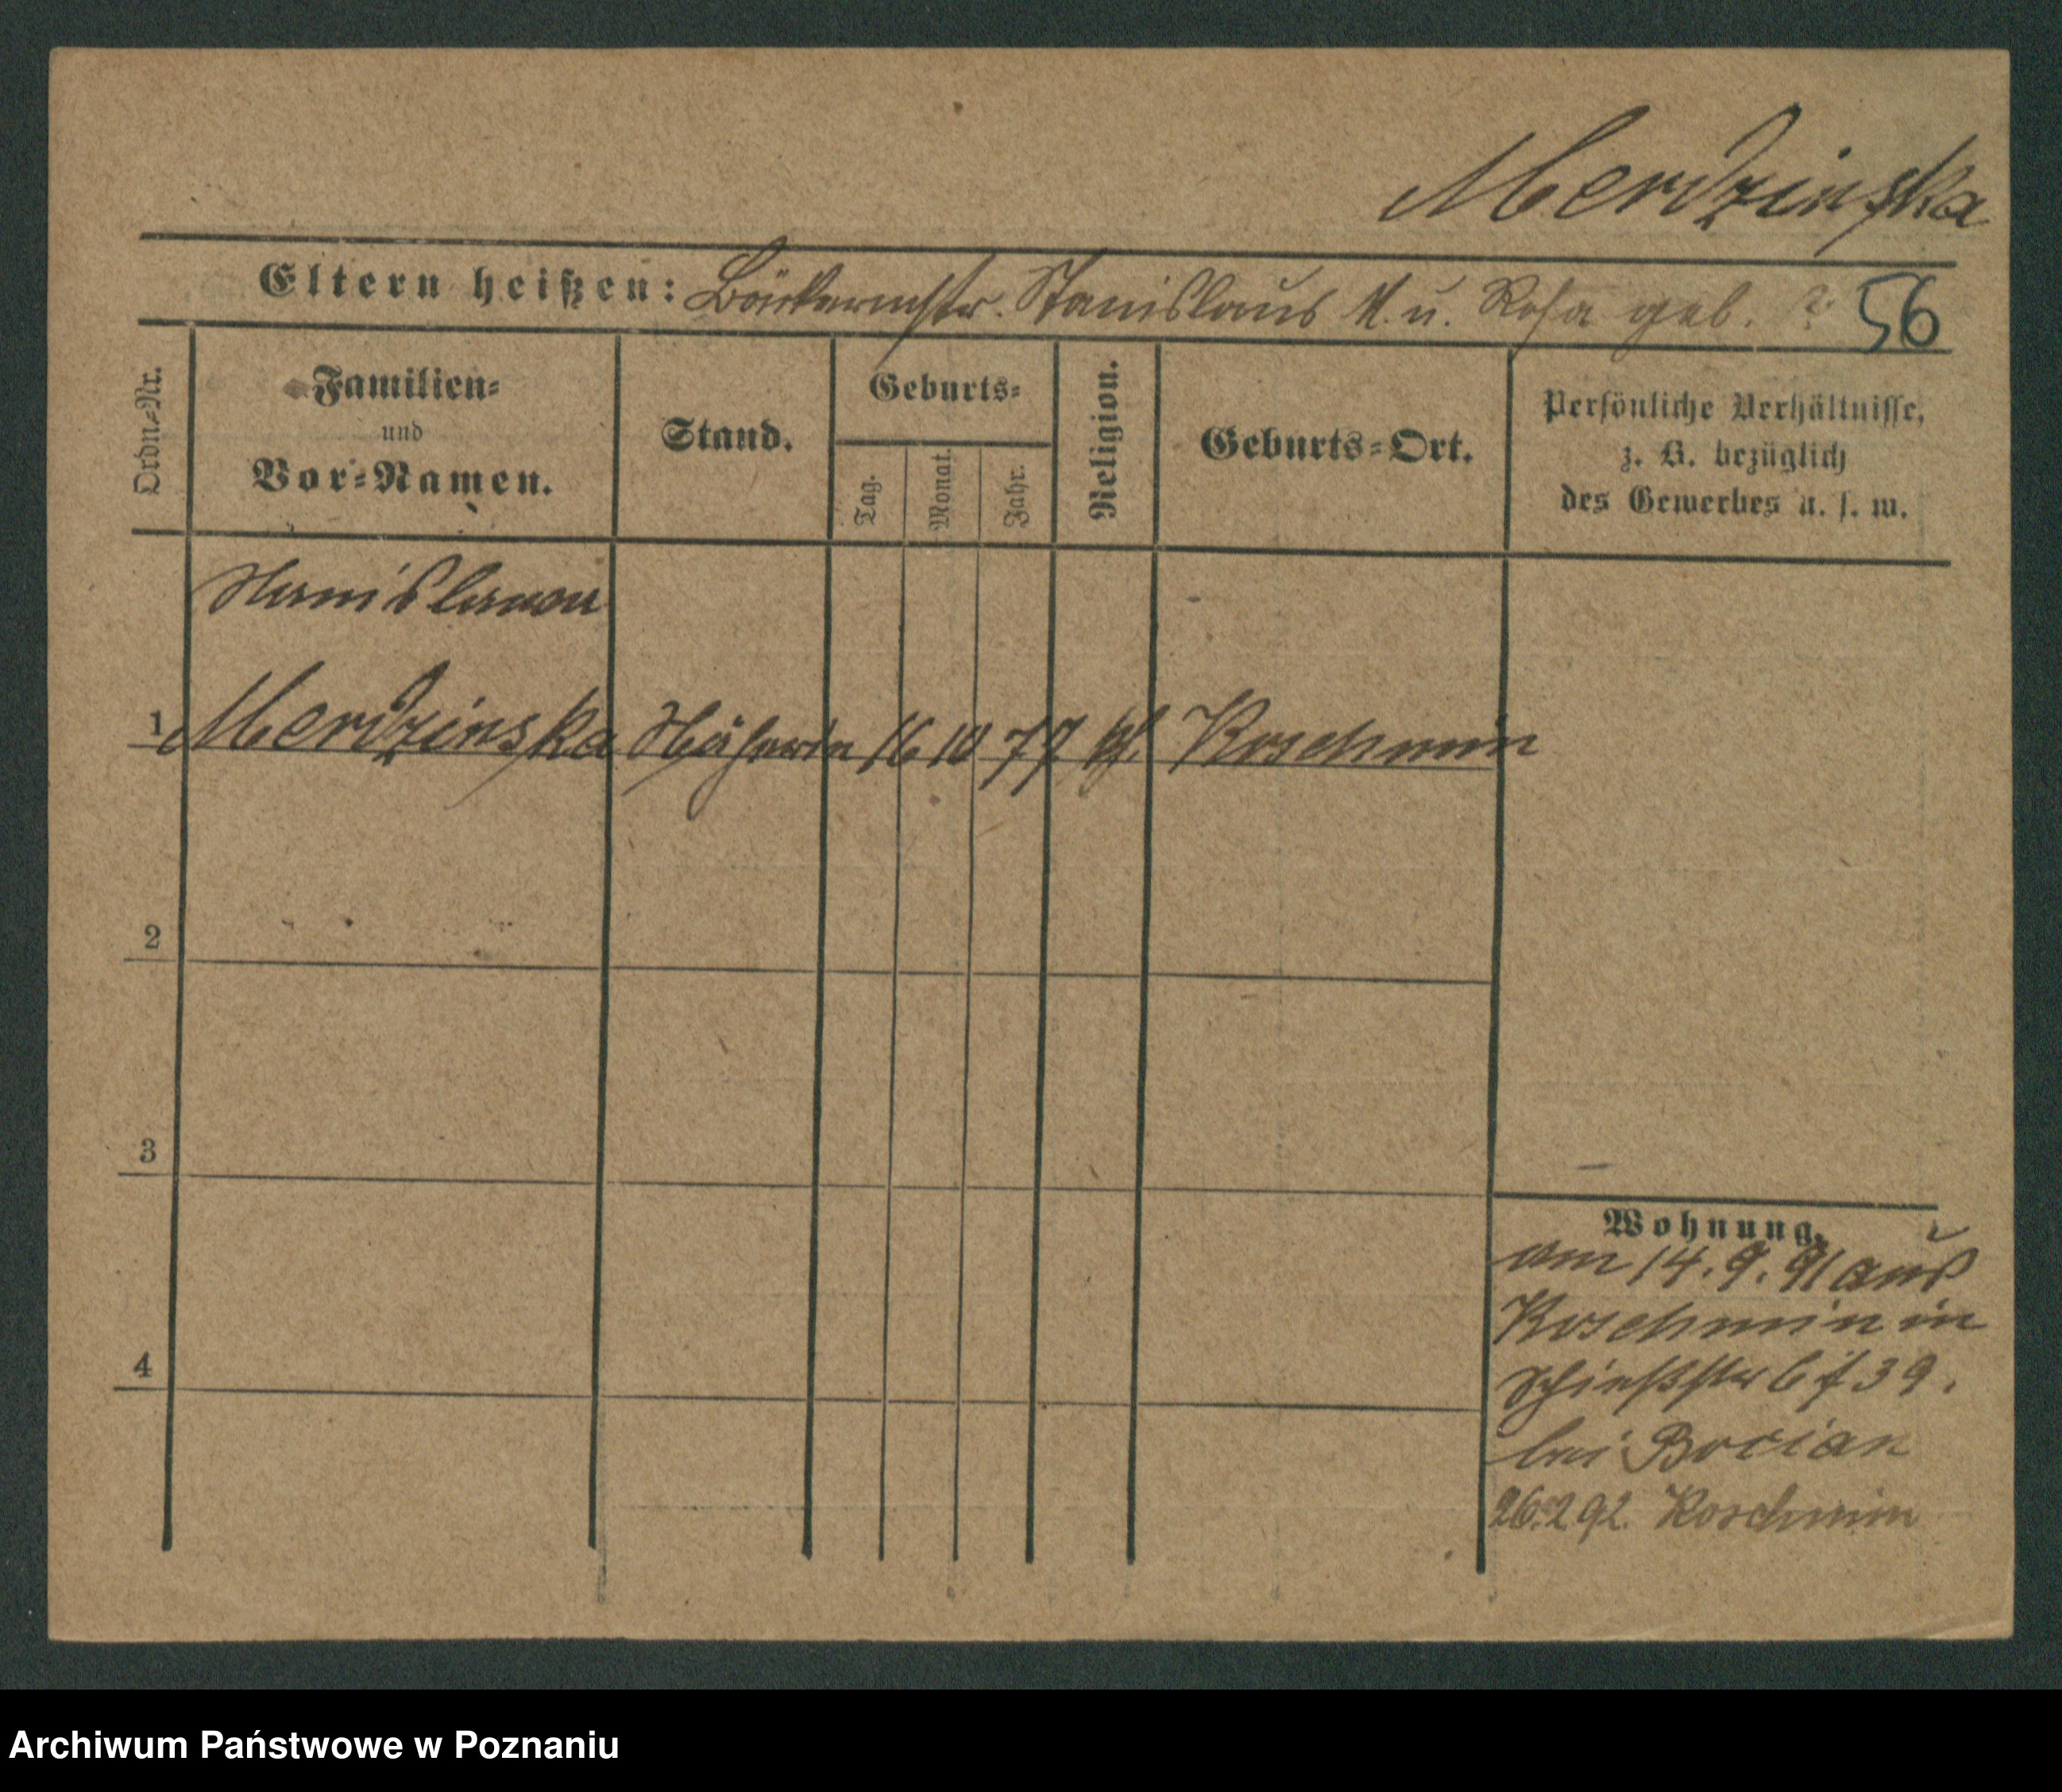 Merdzinska
Eltern heißen: Bäckermstr. Stanislaus M. u. Rosa geb. ?
56
Ordn.-Nr.
Familien-
und
Vor-Namen.
Stand.
Geburts-
Tag.
Monat.
Jahr.
Religion.
Geburts-Ort.
Persönliche Verhältnisse,
z. B. bezüglich
des Gewerbes u. s. w.
Stanislawa
1 Merdzinska Näherin 16 10 77 kf. Koschmin
2
3
4
Wohnung.
am 14. 9. 91 aus
Koschmin in
39.
bei Bocian
26.2 92. Koschmin
Archiwum Państwowe w Poznaniu